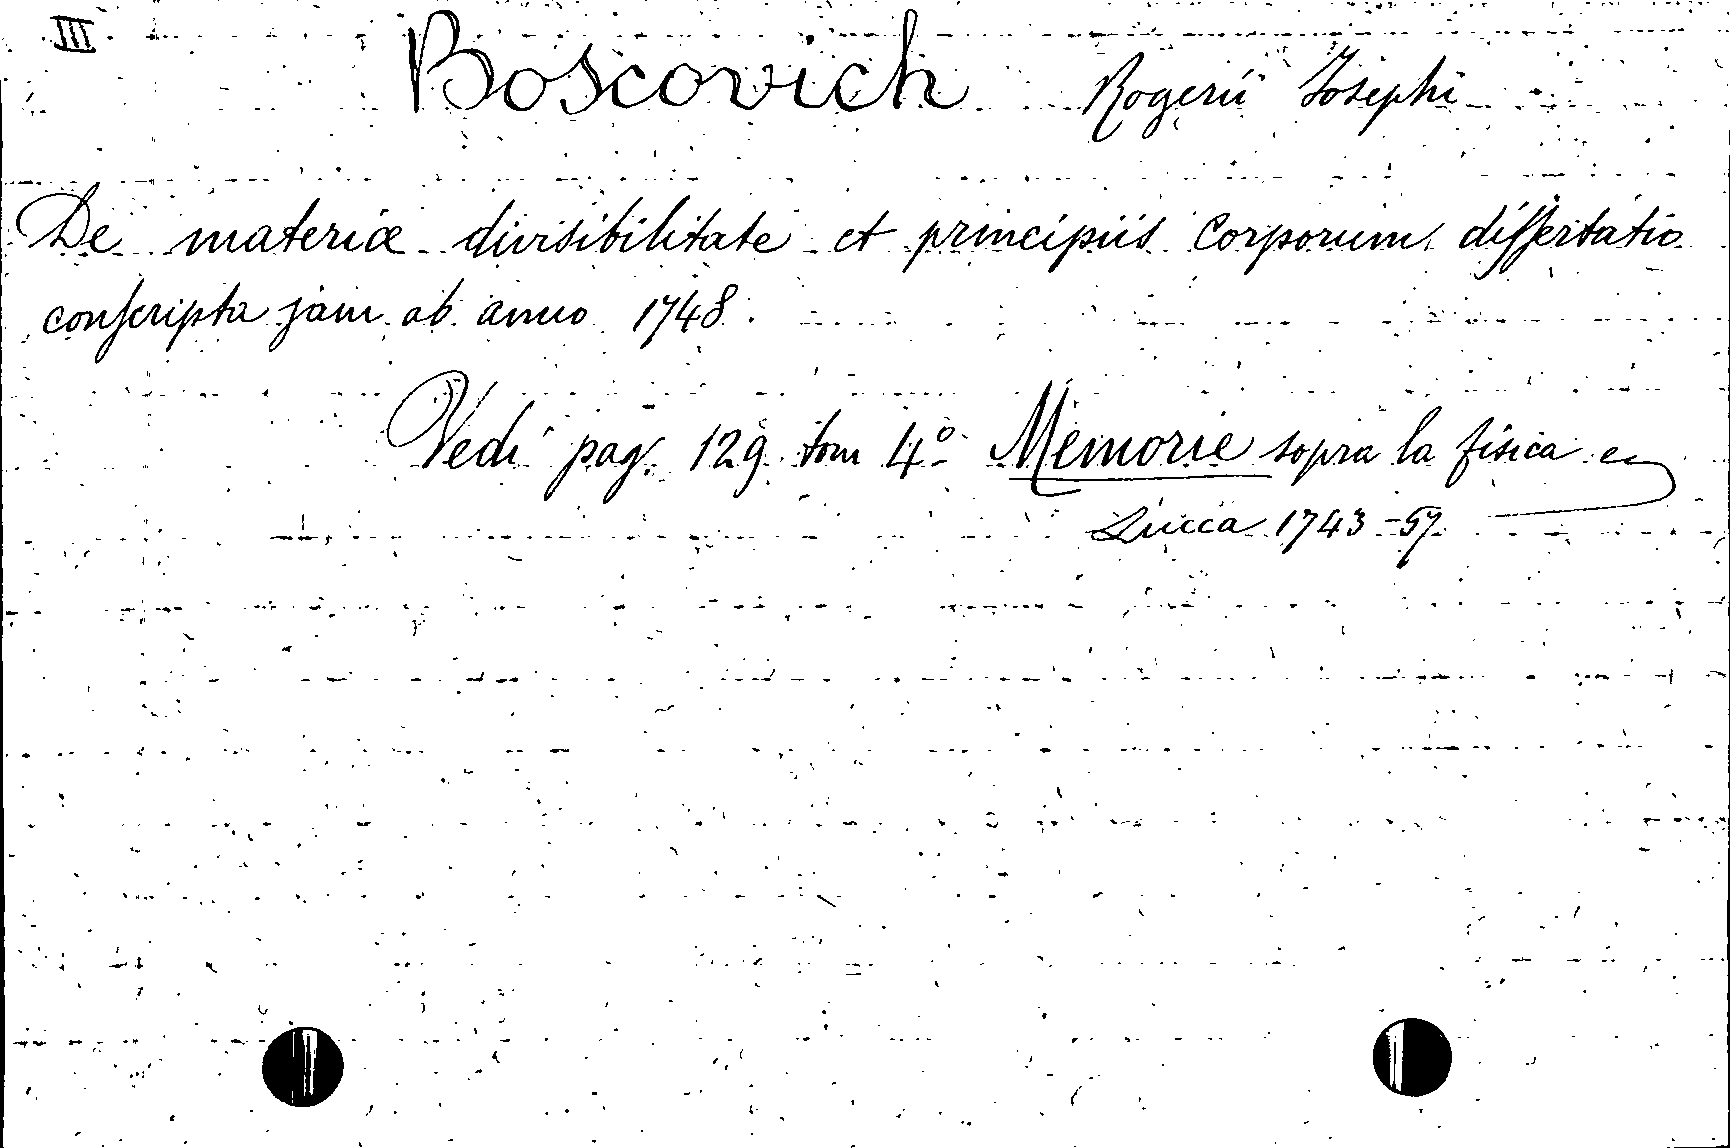 III Boscovich Rogerii Josephi
De materiæ divisibilitate et principiis corporum, dissertatio
conscripta jam ab anno 1748.
Vedi pag. 129 tom 4º Memorie sopra la fisica ec
Lucca 1743-57.